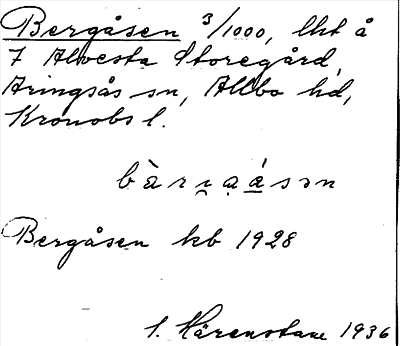 Bergåsen 3/1000, lht å
7 Alvesta Storegård,
Aringsås sn, Allbo hd,
Kronobs l.
bàrı̯a̯ásən
Bergåsen kb 1928
1936